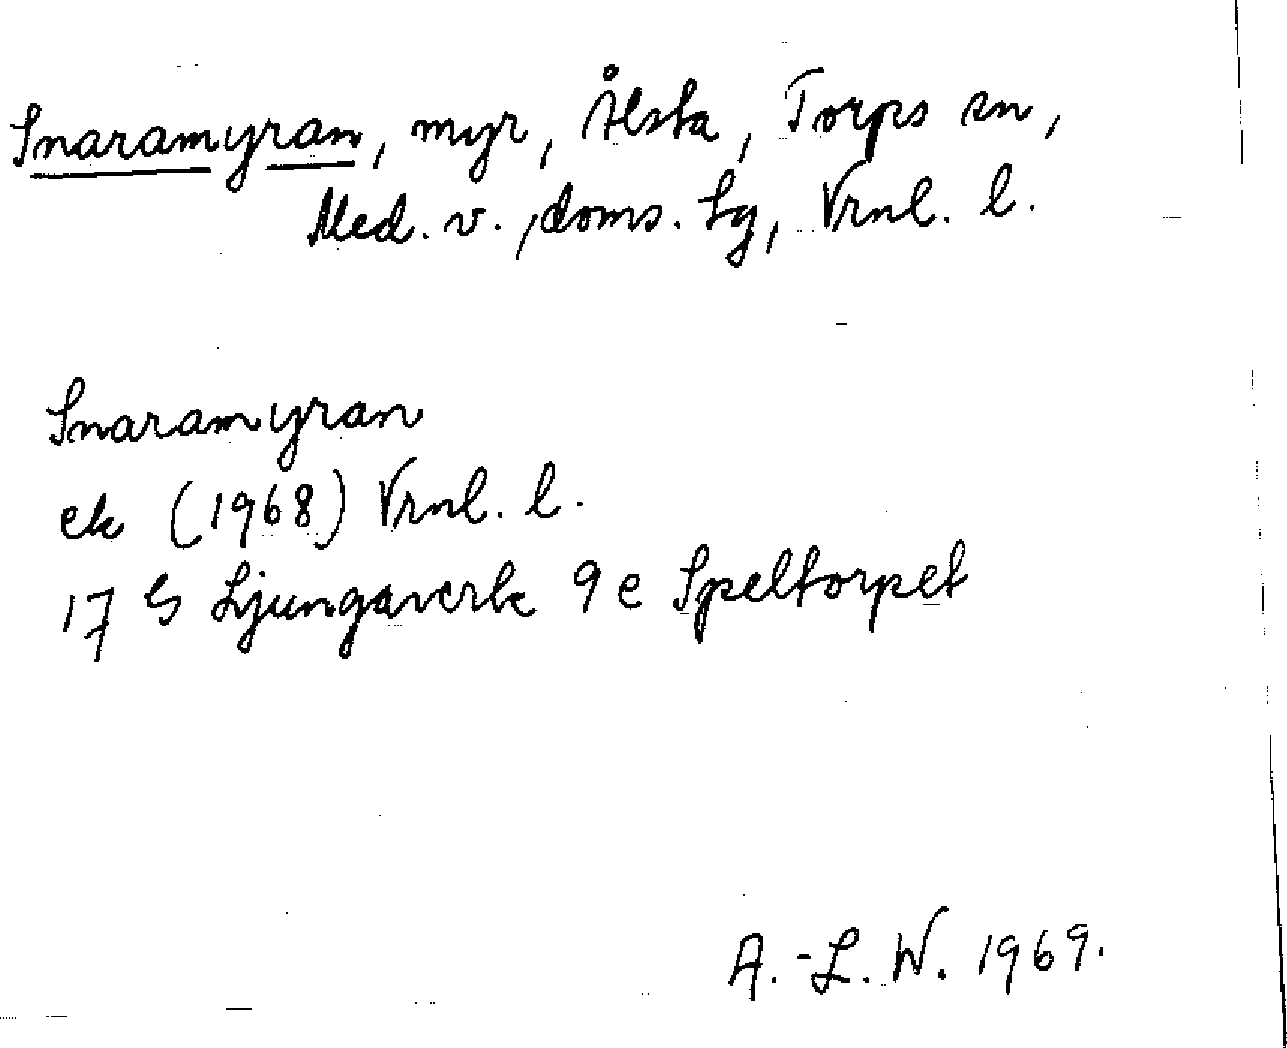 Snaramyran, myr, Ålsta, Torps sn,
Med. v., doms. Lg, Vrnl. l.
Snaramyran
ek (1968) Vrnl. l.
17 G Ljungaverk 9 e Speltorpet
A.-L. W. 1969.